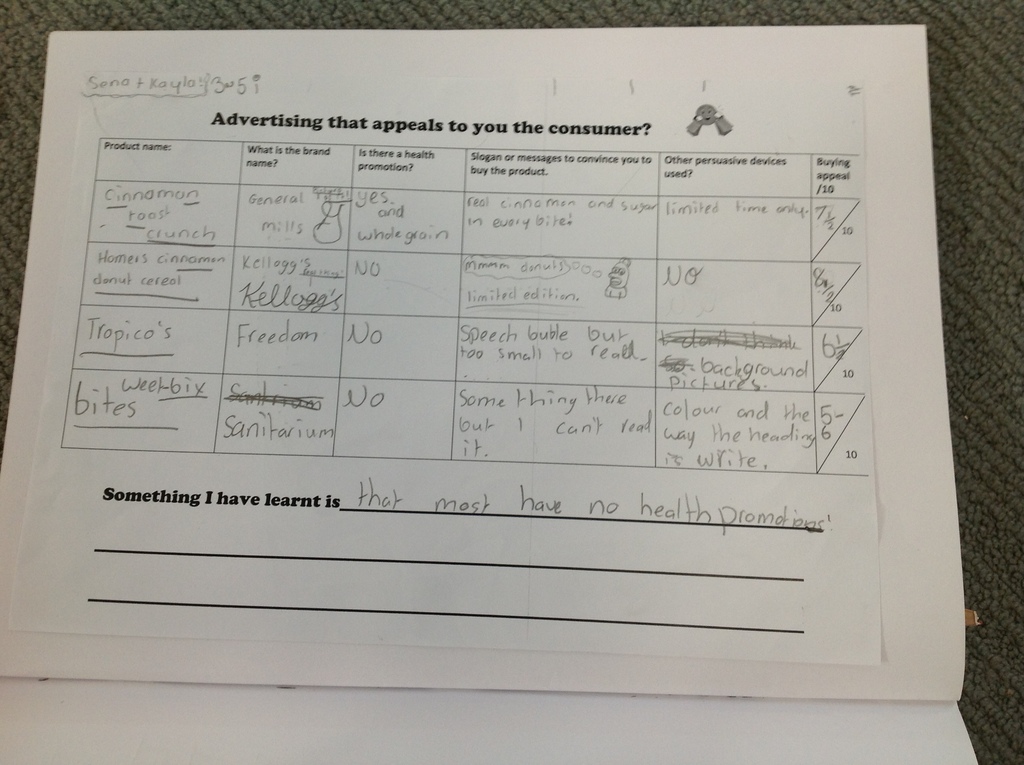 Sena + Kayla
Advertising that appeals to you the consumer?
Product name:
What is the brand name?
Is there a health promotion?
Slogan or messages to convince you to buy the product.
Other persuasive devices used?
Buying appeal /10
cinnamon
roast
crunch
General
mills
yes.
and
whole grain
real cinnamon and sugar
in every bite!
limited time only.
7 1/2
10
Homers cinnamon
donut cereal
Kellogg's
Kellogg's
NO
mmmm donuts
limited edition.
NO
8 1/2
10
Tropico's
Freedom
No
Speech buble but
too small to read.
background
pictures.
6 1/2
10
weet-bix
bites
Sanitarium
No
Some thing there
but I can't read
it.
colour and the
way the heading
is write.
5-
6
10
Something I have learnt is that most have no health promotions!